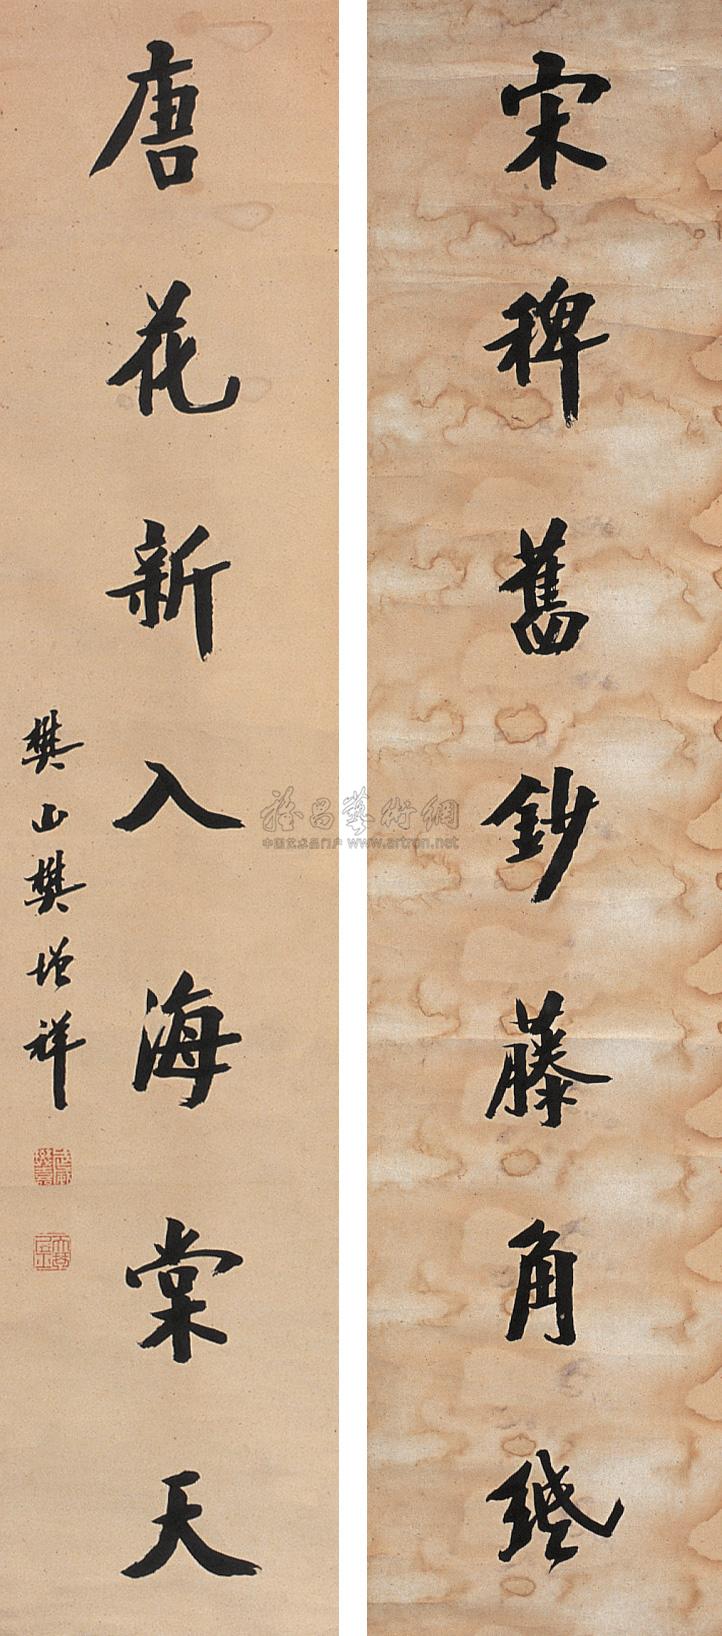 宋稗舊鈔藤角紙
唐花新入海棠天
樊山樊增祥
雅昌藝術網
中国艺术品门户 www.artron.net